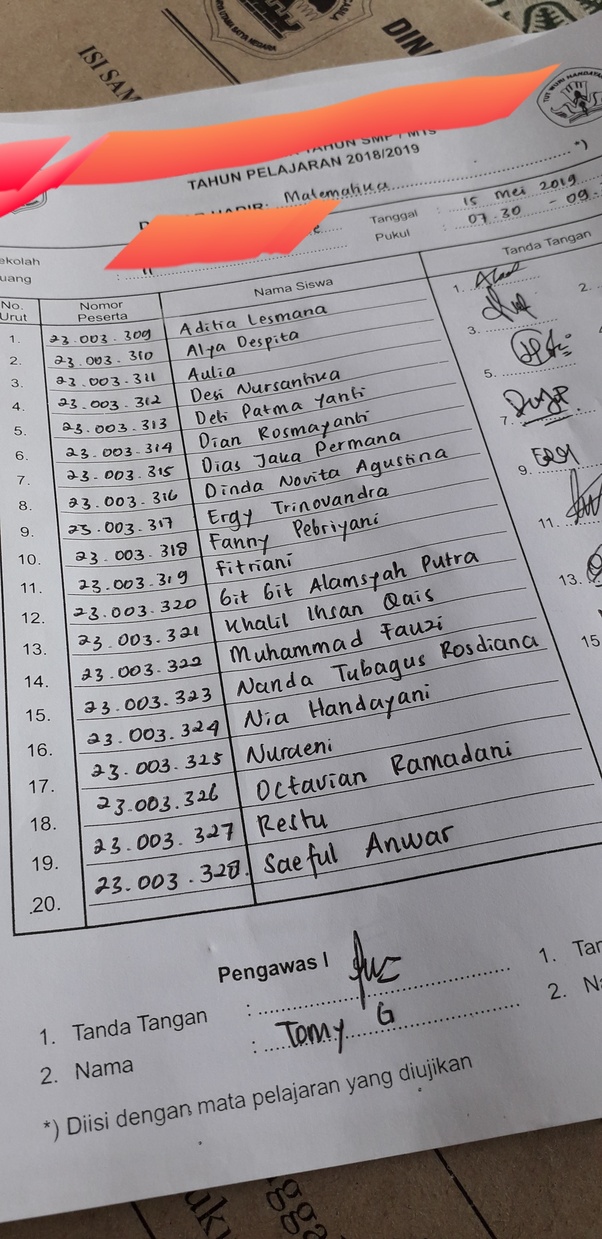 ISI SAM
DIN
TAHUN SMP / MTs
TAHUN PELAJARAN 2018/2019
HADIR: Matematika *)
Tanggal : 15 Mei 2019
Pukul : 07.30 - 09.
ekolah
uang :
No. Urut Nomor Peserta Nama Siswa Tanda Tangan
1. 23.003.309 Aditia Lesmana 1. 2.
2. 23.003.310 Alya Despita
3. 23.003.311 Aulia 3.
4. 23.003.312 Desi Nursantika
5. 23.003.313 Deti Patma Yanti 5.
6. 23.003.314 Dian Rosmayanti
7. 23.003.315 Dias Jaka Permana 7.
8. 23.003.316 Dinda Novita Agustina
9. 23.003.317 Ergy Trinovandra 9.
10. 23.003.318 Fanny Pebriyani
11. 23.003.319 Fitriani 11.
12. 23.003.320 Git Git Alamsyah Putra
13. 23.003.321 Khalil Ihsan Qais 13.
14. 23.003.322 Muhammad Fauzi
15. 23.003.323 Nanda Tubagus Rosdiana 15
16. 23.003.324 Nia Handayani
17. 23.003.325 Nuraeni
18. 23.003.326 Octavian Ramadani
19. 23.003.327 Restu
20. 23.003.328. Saeful Anwar
Pengawas I
1. Tanda Tangan : 1. Tan
2. Nama : Tomy G 2. Na
*) Diisi dengan mata pelajaran yang diujikan